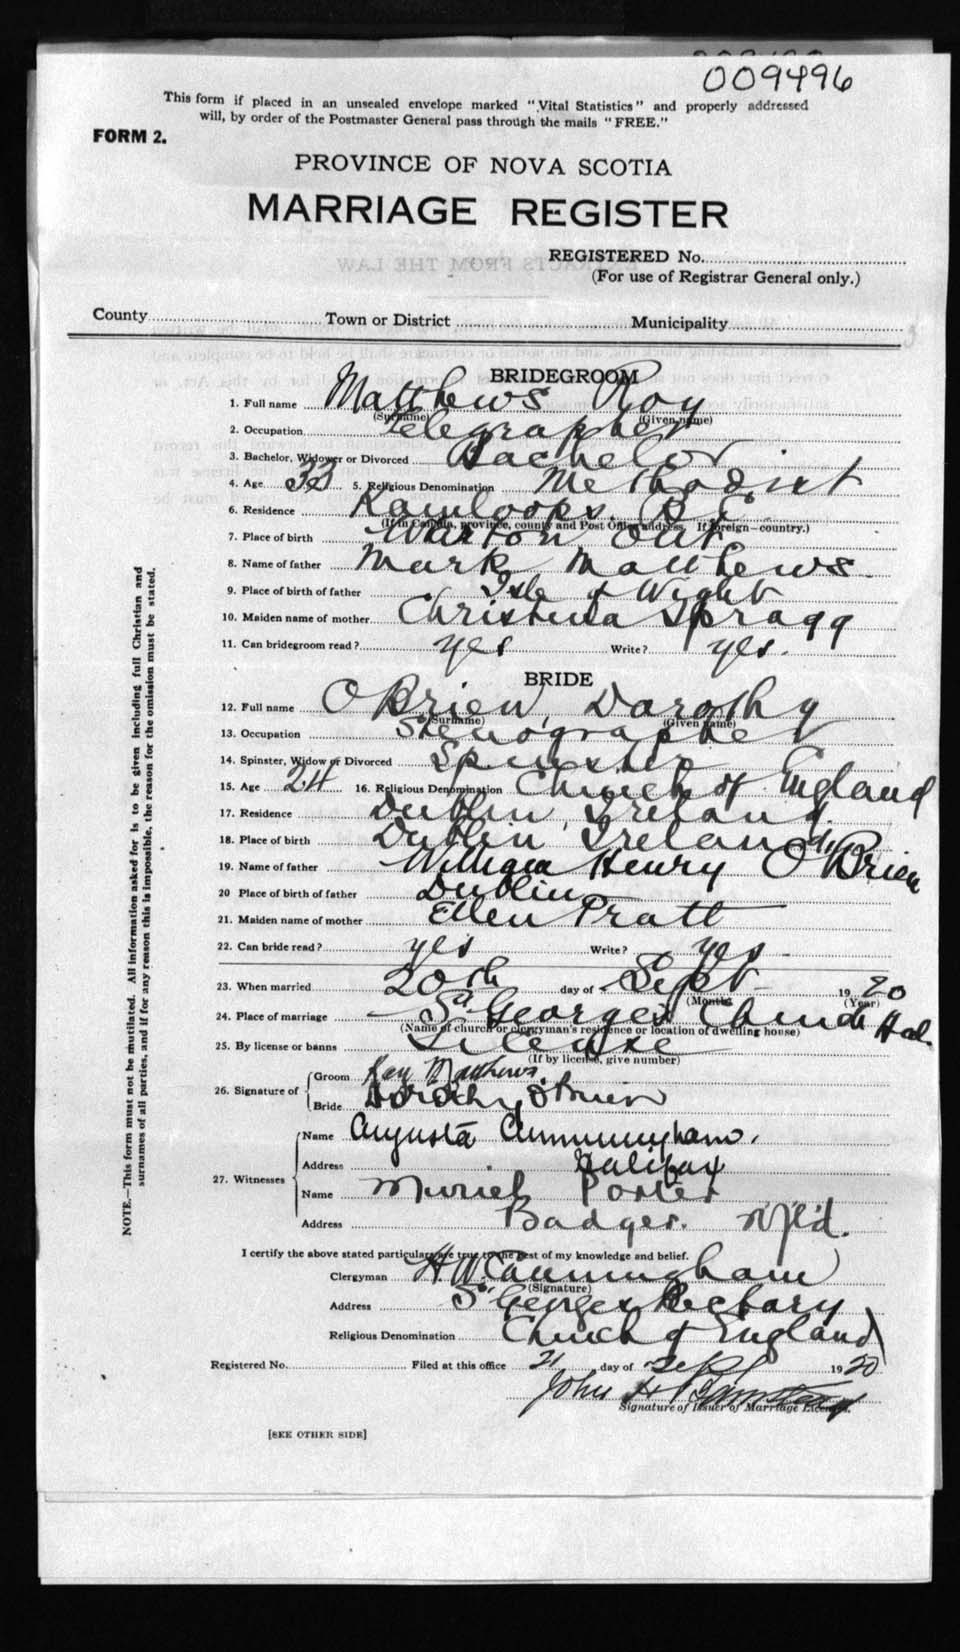 009496
This form if placed in an unsealed envelope marked "Vital Statistics" and properly addressed
will, by order of the Postmaster General pass through the mails "FREE."
FORM 2.
PROVINCE OF NOVA SCOTIA
MARRIAGE REGISTER
REGISTERED No.
(For use of Registrar General only.)
County Town or District Municipality
BRIDEGROOM
1. Full name Matthews Roy
(Surname) (Given name)
2. Occupation Telegrapher
3. Bachelor, Widower or Divorced Bachelor
4. Age 33 5. Religious Denomination Methodist
6. Residence Kamloops. B.C.
(If in Canada, province, county and Post Office address. If foreign—country.)
7. Place of birth Wiarton Ont.
8. Name of father Mark Matthews
9. Place of birth of father Isle of Wight
10. Maiden name of mother Christina Spragg
11. Can bridegroom read? yes Write? yes.
BRIDE
12. Full name O'Brien, Dorothy
(Surname) (Given name)
13. Occupation Stenographer
14. Spinster, Widow or Divorced Spinster
15. Age 24 16. Religious Denomination Church of England
17. Residence Dublin, Ireland.
18. Place of birth Dublin Ireland,
19. Name of father William Henry O'Brien
20 Place of birth of father Dublin
21. Maiden name of mother Ellen Pratt
22. Can bride read? yes Write? yes
23. When married 20th day of Sept 1920
(Month) (Year)
24. Place of marriage St Georges Church Hal.
(Name of church or clergyman's residence or location of dwelling house)
25. By license or banns License
(If by license, give number)
26. Signature of Groom Roy Matthews.
Bride Dorothy O'Brien
27. Witnesses Name Augusta Cunningham.
Address Halifax
Name Muriel Porter
Address Badger. Nfld.
I certify the above stated particulars are true to the best of my knowledge and belief.
Clergyman H. W. Cunningham
(Signature)
Address St Georges Rectory
Religious Denomination Church of England
Registered No. Filed at this office 21 day of Sept 1920
John H
Signature of Issuer of Marriage License.
[SEE OTHER SIDE]
NOTE.—This form must not be mutilated. All information asked for is to be given including full Christian and
surnames of all parties, and if for any reason this is impossible, the reason for the omission must be stated.